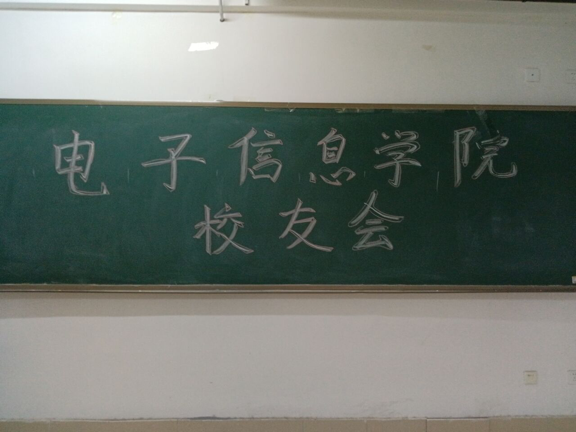 电子信息学院
校友会